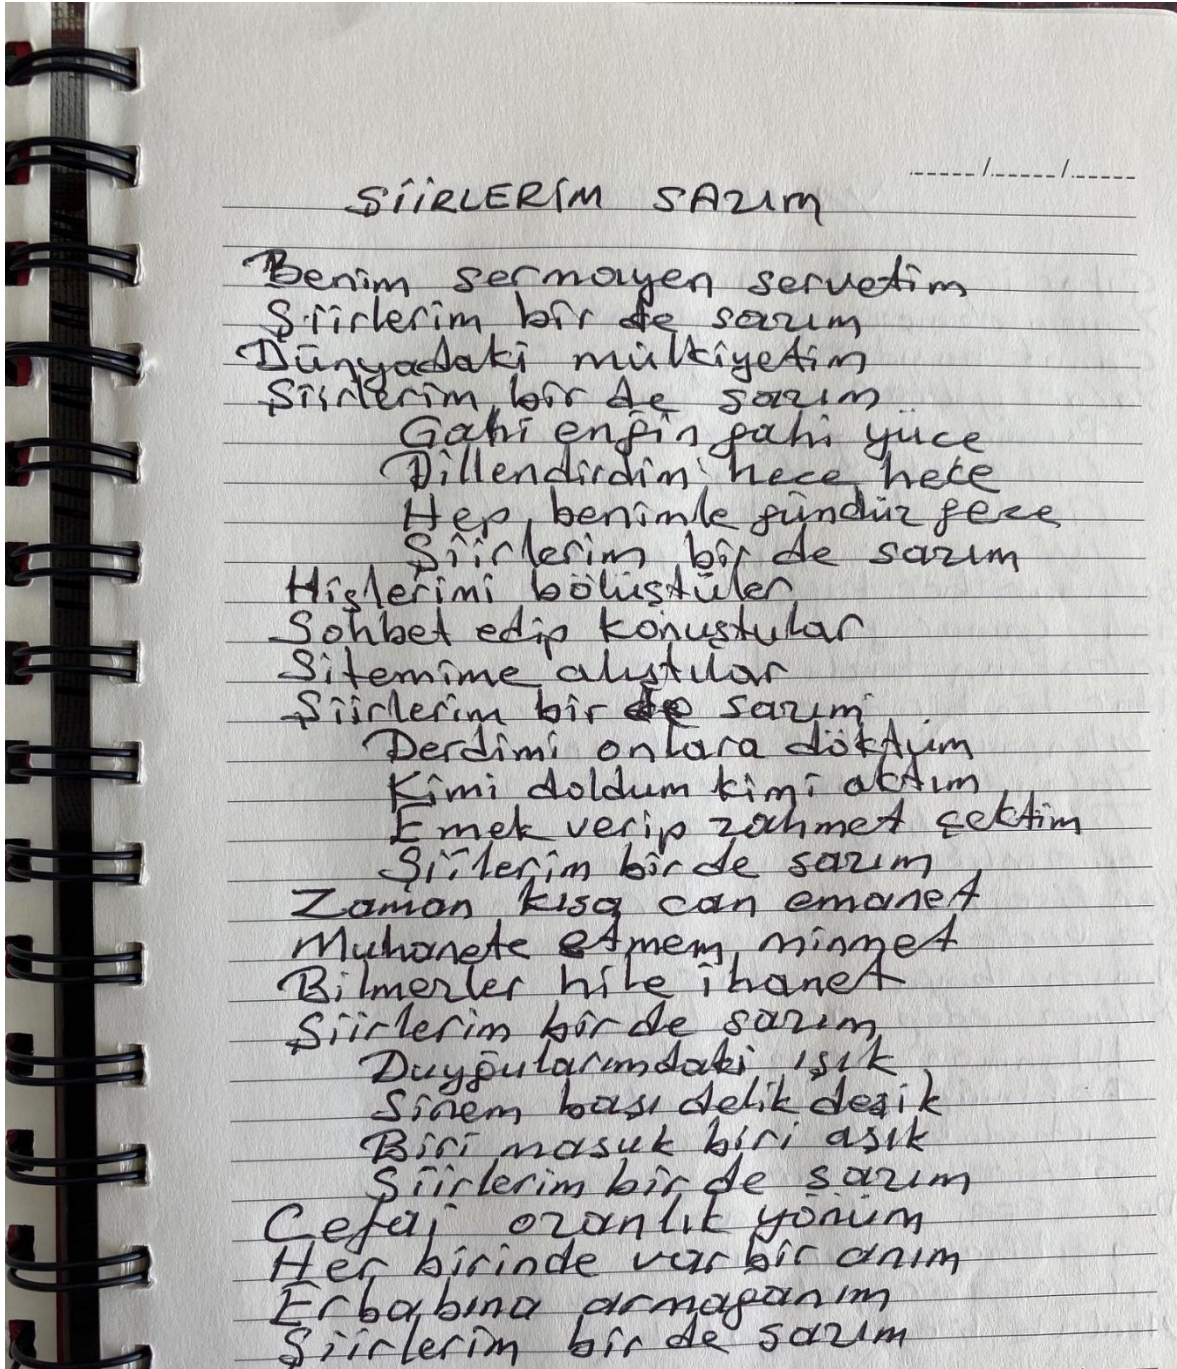 ŞİİRLERİM SAZIM
Benim sermayen servetim
Şiirlerim bir de sazım
Dünyadaki mülkiyetim
Şiirlerim bir de sazım
Gahi engin gahi yüce
Dillendirdim hece hece
Hep benimle gündüz gece
Şiirlerim bir de sazım
Hislerimi bölüştüler
Sohbet edip konuştular
Sitemime alıştılar
Şiirlerim bir de sazım
Derdimi onlara döktüm
Kimi doldum kimi aktım
Emek verip zahmet çektim
Şiilerim bir de sazım
Zaman kısa can emanet
Muhanete etmem minnet
Bilmezler hile ihanet
Şiirlerim bir de sazım
Duygularımdaki ışık
Sinem başı delik deşik
Biri maşuk biri aşık
Şiirlerim bir de sazım
Cefai ozanlık yönüm
Her birinde var bir anım
Erbabına armağanım
Şiirlerim bir de sazım